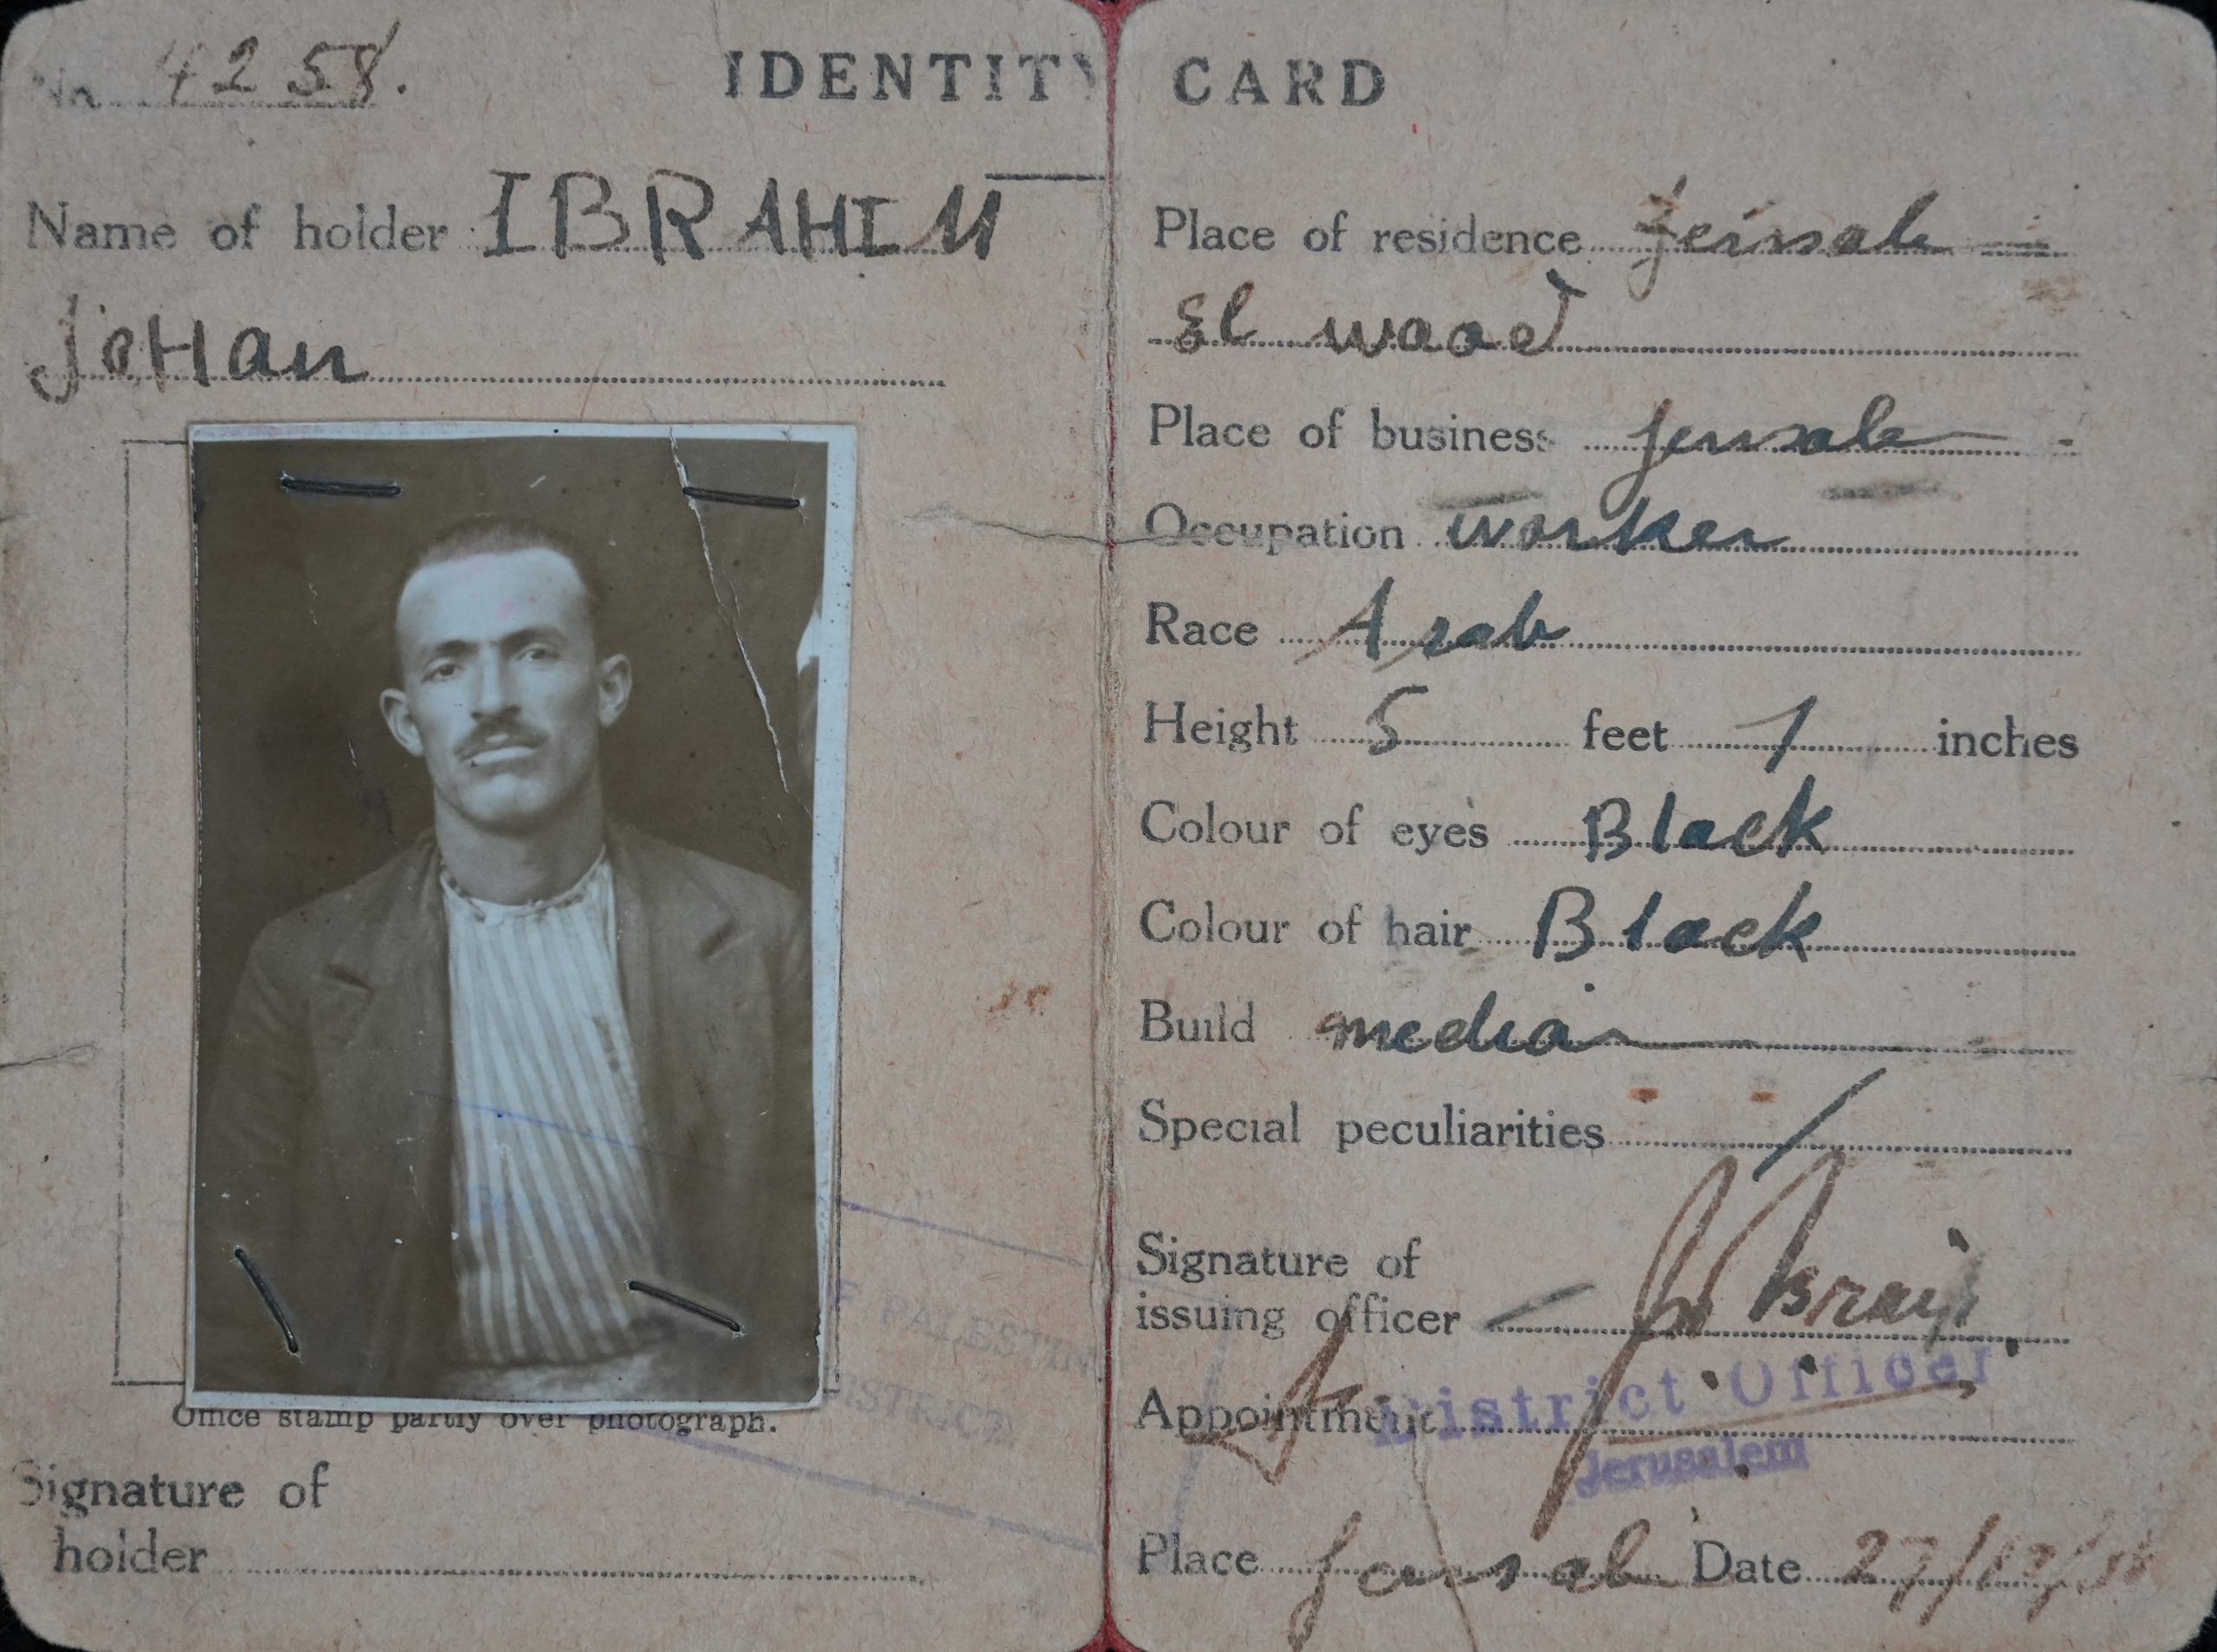 No. 4258.
IDENTITY CARD
Name of holder IBRAHIM
JoHan
Office stamp partly over photograph.
Signature of
holder
Place of residence Jerusale
El waad
Place of business Jerusale
Occupation worker
Race Arab
Height 5 feet 7 inches
Colour of eyes Black
Colour of hair Black
Build media
Special peculiarities /
Signature of
issuing officer
Appointment District Officer
Jerusalem
Place Jerusal Date 27/12/38
PALESTIN